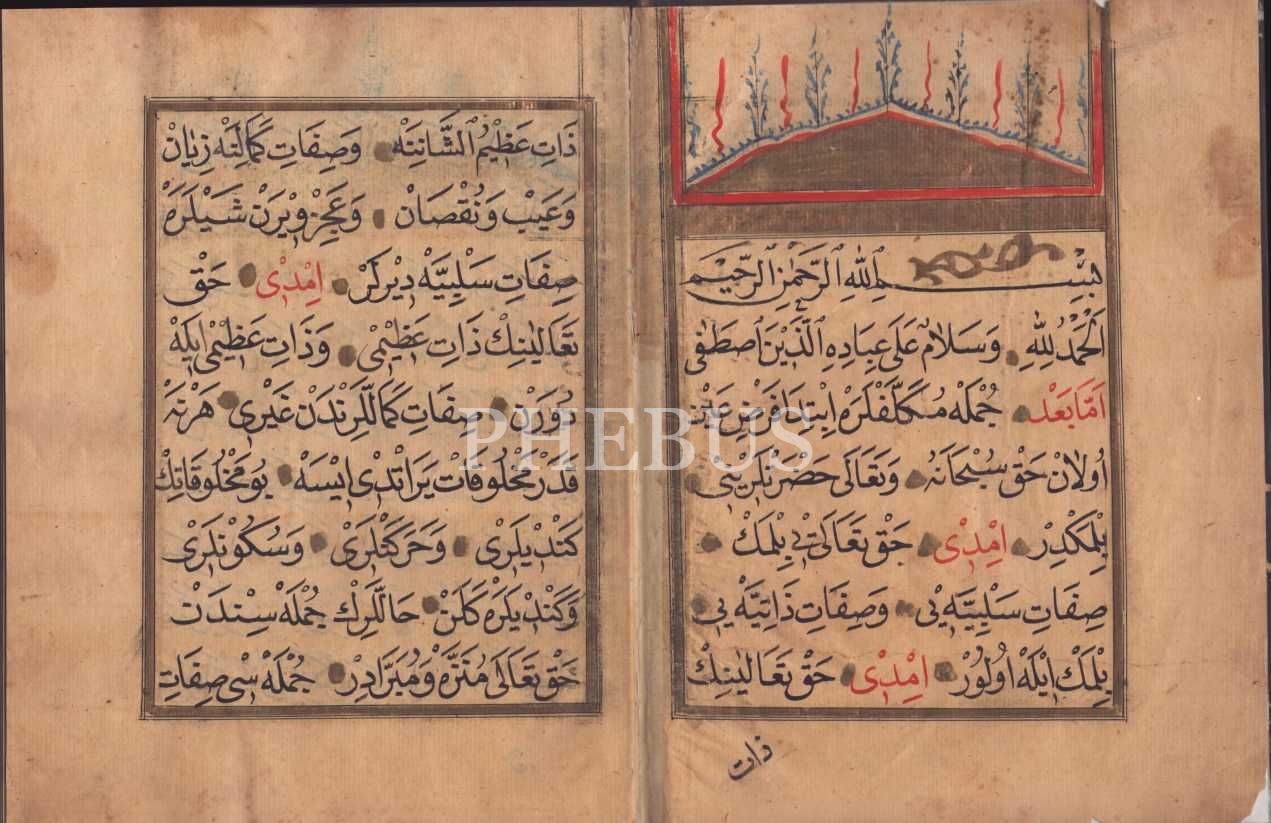 بِسْمِ اللهِ الرَّحْمٰنِ الرَّحِيْمِ
اَلْحَمْدُ لِلّٰهِ وَسَلَامٌ عَلَى عِبَادِهِ الَّذِيْنَ اصْطَفٰى
اَمَّا بَعْدُ جُمْلَه مُكَلَّفْلَرَه اِبْتِدَا فَرْضِ عَيْن
اُولَانْ حَقْ سُبْحَانَهُ وَتَعَالَى حَضْرَتْلَرِيْنِي
بِلْمَكْدِرْ اِمْدِي حَقْ تَعَالَى يِي بِلْمَكْ
صِفَاتِ سَلْبِيَّه يِي وَصِفَاتِ ذَاتِيَّه يِي
بِلْمَكْ اِيْلَه اُولُوْرْ اِمْدِي حَقْ تَعَالٰينِكْ
ذات
ذَاتِ عَظِيْمُ الشَّانِنَه وَصِفَاتِ كَمَالَتِنَه زِيَانْ
وَعَيْبْ وَنُقْصَانْ وَعَجِزْ وِيْرَنْ شَيْلَرَه
صِفَاتِ سَلْبِيَّه دِيْرلَرْ اِمْدِي حَقْ
تَعَالٰينِكْ ذَاتِ عَظِيْمِي وَذَاتِ عَظِيْمِي اِيلَه
دُورَنْ صِفَاتِ كَمَاللَّرِنْدَنْ غَيْرِي هَرْ نَه
قَدَرْ مَخْلُوقَاتْ يَرَاتْدِي اِيْسَه بُو مَخْلُوقَاتِكْ
كَنْدِيلَرِي وَحَرَكَتْلَرِي وَسُكُونْلَرِي
وَكَنْدِيلَرَه كَلَنْ حَاللَّرِكْ جُمْلَه سِنْدَنْ
حَقْ تَعَالَى مُنَزَّه وَمُبَرَّادِرْ جُمْلَه سِي صِفَاتِ
PHEBUS